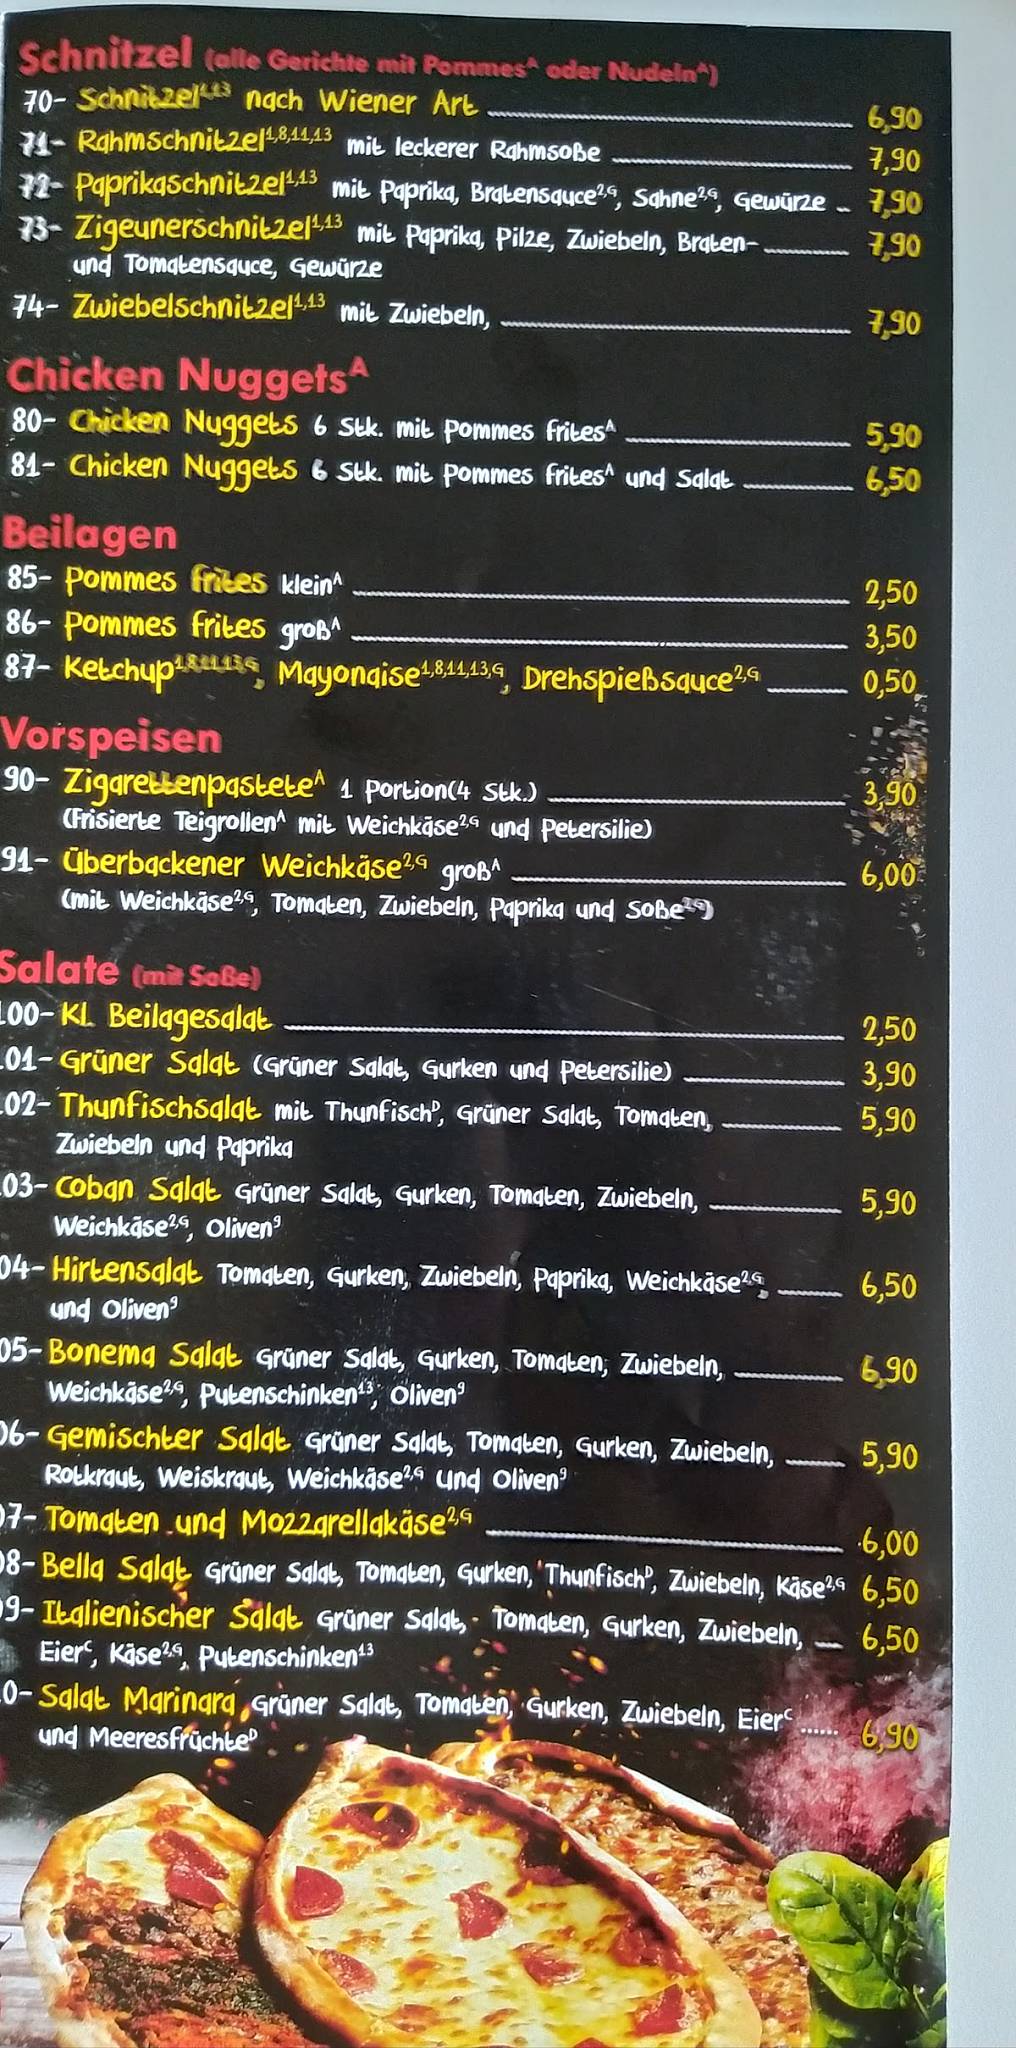 Schnitzel (alle Gerichte mit Pommesᴬ oder Nudelnᴬ)
70- Schnitzel¹,¹³ nach Wiener Art 6,90
71- Rahmschnitzel¹,⁸,¹¹,¹³ mit leckerer Rahmsoße 7,90
72- Paprikaschnitzel¹,¹³ mit Paprika, Bratensauce²,ᴳ, Sahne²,ᴳ, Gewürze 7,90
73- Zigeunerschnitzel¹,¹³ mit Paprika, Pilze, Zwiebeln, Braten- 7,90
und Tomatensauce, Gewürze
74- Zwiebelschnitzel¹,¹³ mit Zwiebeln, 7,90
Chicken Nuggetsᴬ
80- Chicken Nuggets 6 Stk. mit Pommes fritesᴬ 5,90
81- Chicken Nuggets 6 Stk. mit Pommes fritesᴬ und Salat 6,50
Beilagen
85- Pommes frites kleinᴬ 2,50
86- Pommes frites großᴬ 3,50
87- Ketchup¹,⁸,¹¹,¹³,ᴳ, Mayonaise¹,⁸,¹¹,¹³,ᴳ, Drehspießsauce²,ᴳ 0,50
Vorspeisen
90- Zigarettenpasteteᴬ 1 Portion(4 Stk.) 3,90
(Frisierte Teigrollenᴬ mit Weichkäse²,ᴳ und Petersilie)
91- Überbackener Weichkäse²,ᴳ großᴬ 6,00
(mit Weichkäse²,ᴳ, Tomaten, Zwiebeln, Paprika und Soße²,ᴳ)
Salate (mit Soße)
100- Kl. Beilagesalat 2,50
01- Grüner Salat (Grüner Salat, Gurken und Petersilie) 3,90
02- Thunfischsalat mit Thunfischᴰ, Grüner Salat, Tomaten, 5,90
Zwiebeln und Paprika
03- Coban Salat Grüner Salat, Gurken, Tomaten, Zwiebeln, 5,90
Weichkäse²,ᴳ, Oliven⁹
04- Hirtensalat Tomaten, Gurken, Zwiebeln, Paprika, Weichkäse²,ᴳ, 6,50
und Oliven⁹
05- Bonema Salat Grüner Salat, Gurken, Tomaten, Zwiebeln, 6,90
Weichkäse²,ᴳ, Putenschinken¹³, Oliven⁹
06- Gemischter Salat Grüner Salat, Tomaten, Gurken, Zwiebeln, 5,90
Rotkraut, Weiskraut, Weichkäse²,ᴳ und Oliven⁹
07- Tomaten und Mozzarellakäse²,ᴳ 6,00
08- Bella Salat Grüner Salat, Tomaten, Gurken, Thunfischᴰ, Zwiebeln, Käse²,ᴳ 6,50
09- Italienischer Salat Grüner Salat, Tomaten, Gurken, Zwiebeln, 6,50
Eierᶜ, Käse²,ᴳ, Putenschinken¹³
0- Salat Marinara Grüner Salat, Tomaten, Gurken, Zwiebeln, Eierᶜ ...... 6,90
und Meeresfrüchteᴰ